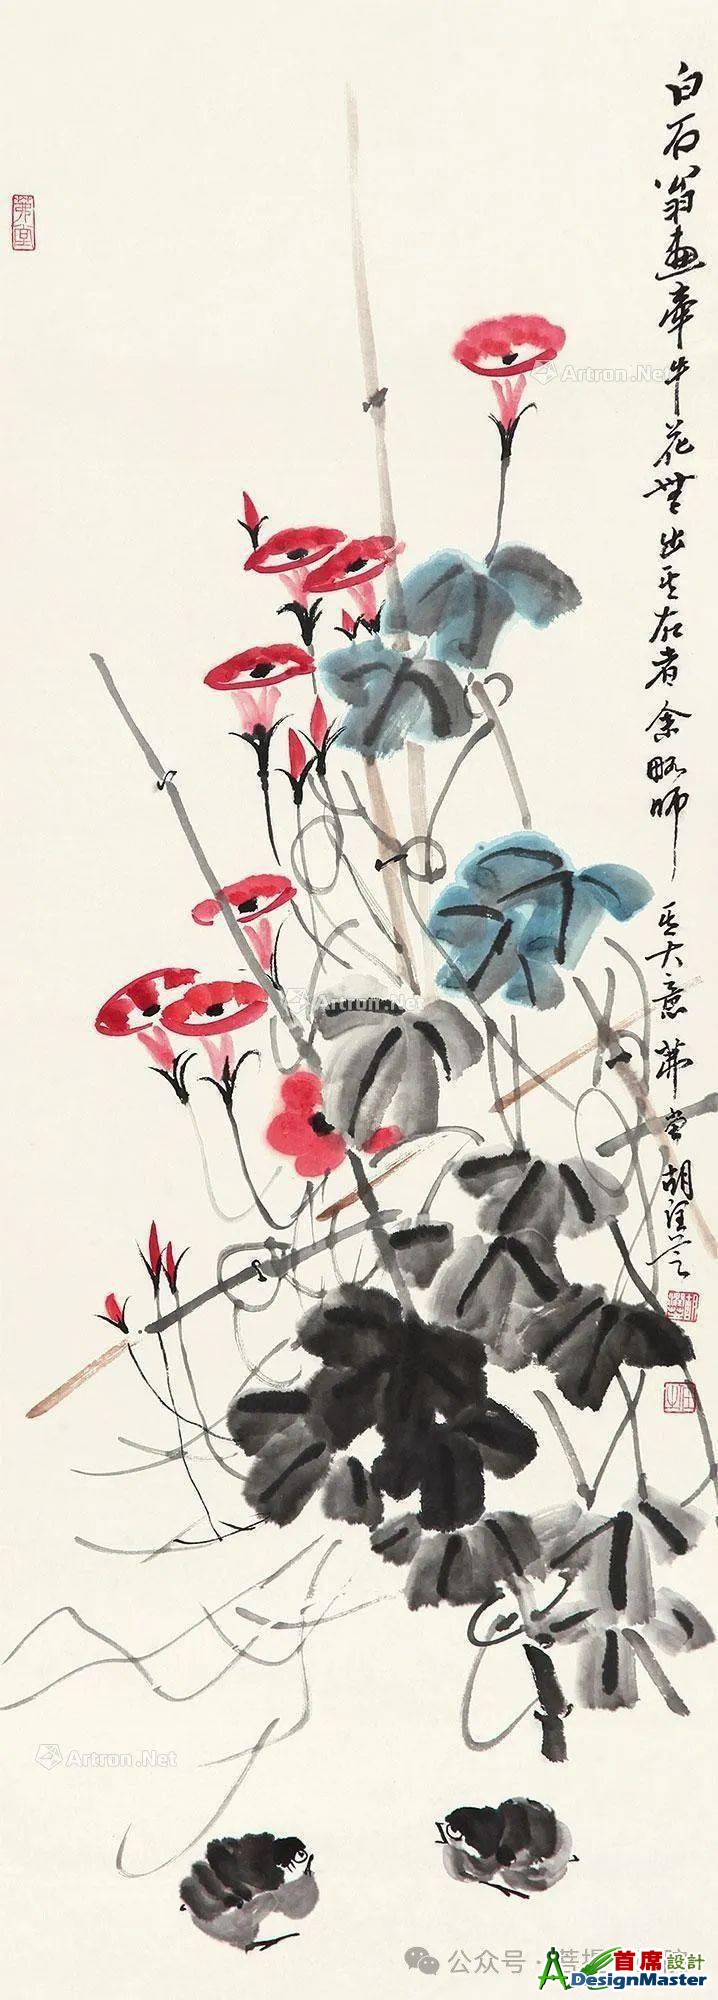 白石翁畫牽牛花無出其右者余略師其大意茀堂胡
茀堂
Artron.Net
Artron.Net
Artron.Net
公众号·菩提
首席設計
ADesignMaster